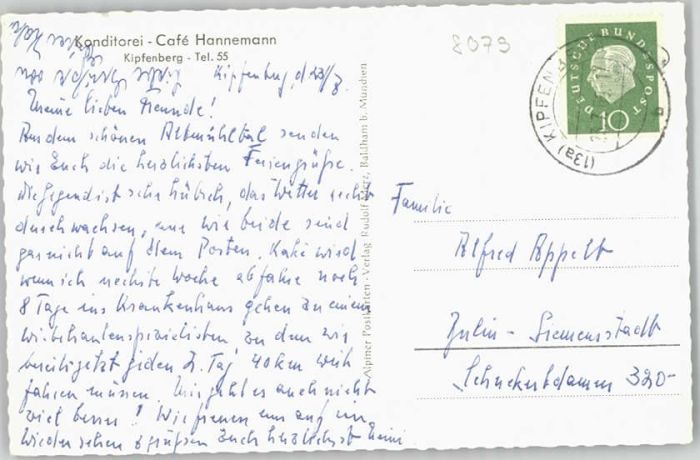 Konditorei - Café Hannemann
Kipfenberg - Tel. 55
Kipfenberg, d.
Meine lieben Freunde!
Aus dem schönen Altmühltal senden
wir Euch die herzlichsten Feriengrüße.
Die Gegend ist sehr hübsch, das Wetter recht
durchwachsen, und wir beide sind
gar nicht auf dem Posten. wird
wenn ich nächste Woche abfahre noch
8 Tage ins Krankenhaus gehen zu einem
zu dem wir
bereits jetzt jeden 2. Tag 40 km weit
fahren müssen. Mir geht es auch nicht
viel besser! Wir freuen uns auf un
Wiedersehen & grüßen Euch herzlichst Heini
Alpiner Postkarten-Verlag Rudolf Baldham b. München
8079
DEUTSCHE BUNDESPOST
10
(13a) KIPFEN
Familie
Alfred Appelt
Berlin - Siemensstadt
Schuckertdamm 320